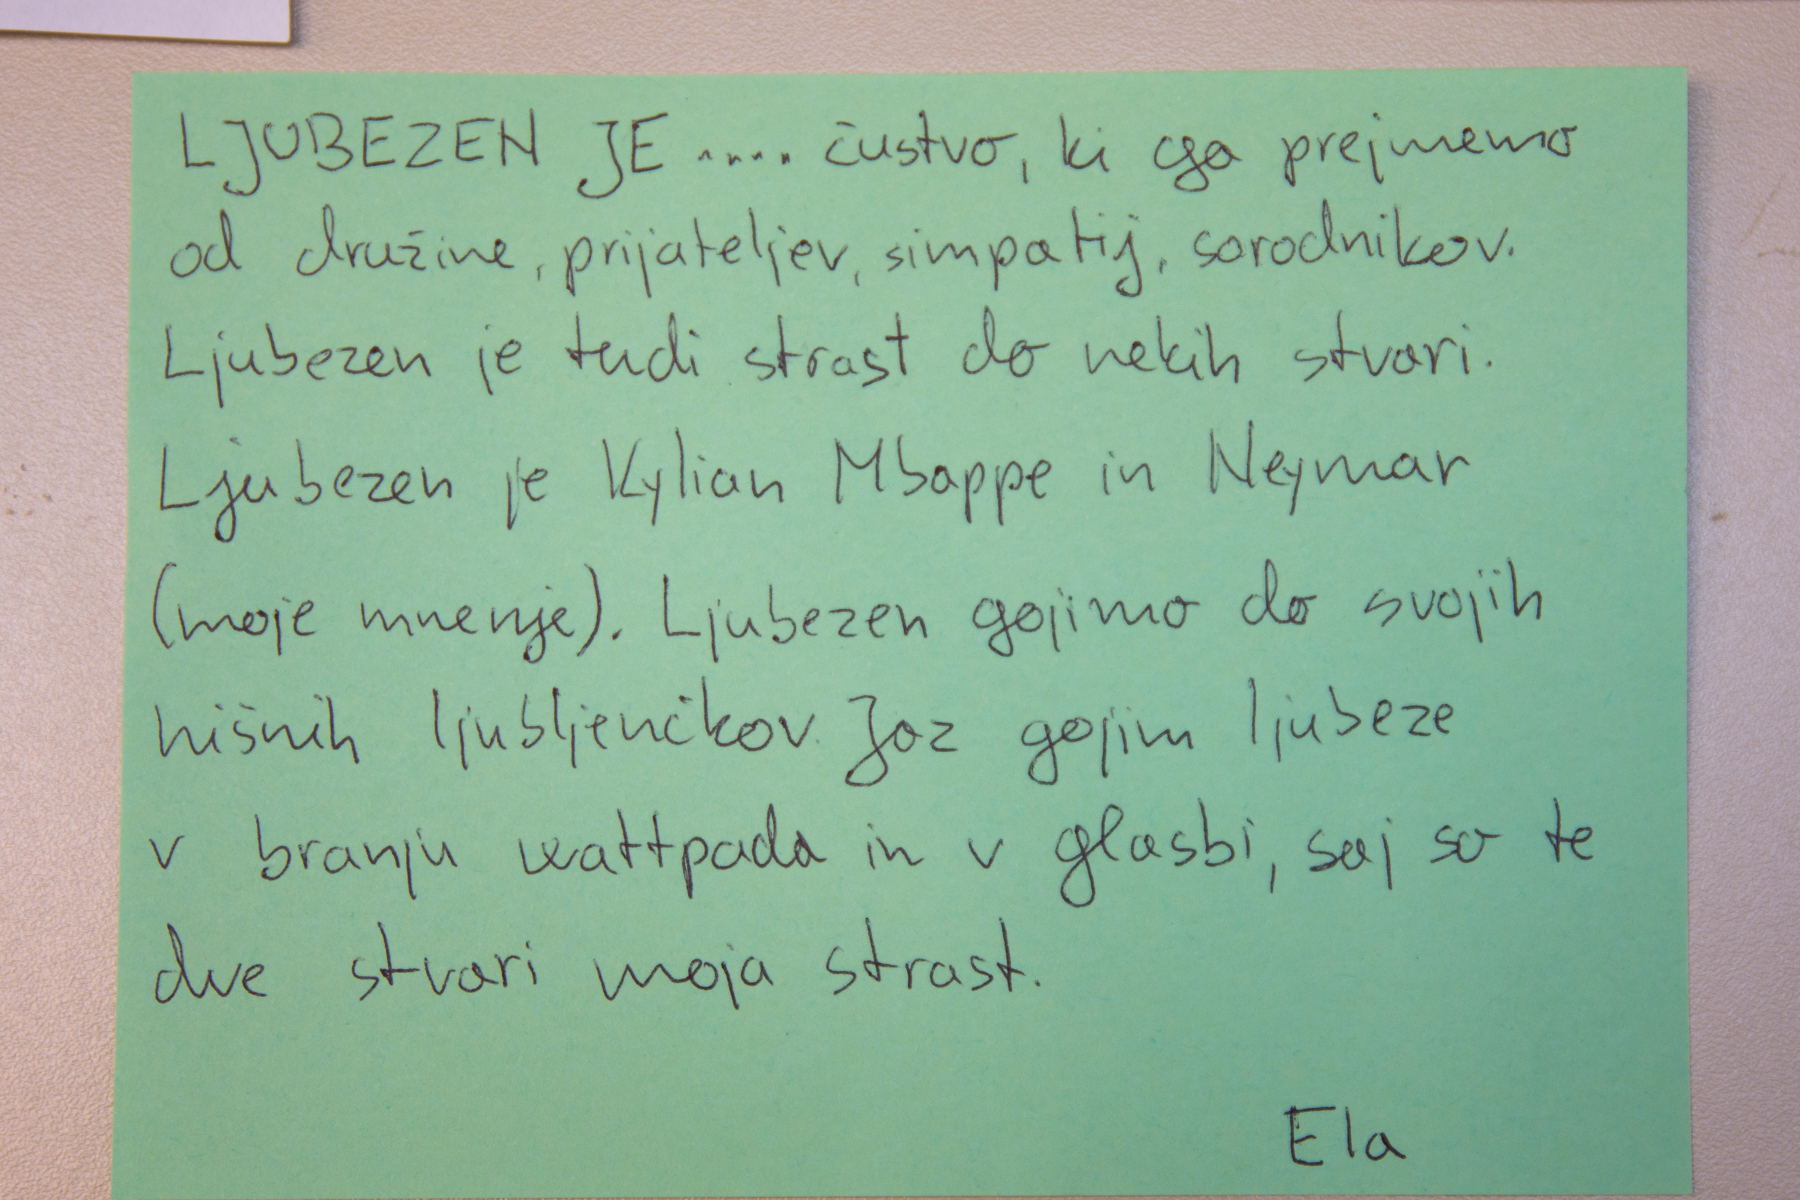 LJUBEZEN JE ..... čustvo, ki ga prejmemo
od družine, prijateljev, simpatij, sorodnikov.
Ljubezen je tudi strast do nekih stvari.
Ljubezen je Kylian Mbappe in Neymar
(moje mnenje). Ljubezen gojimo do svojih
hišnih ljubljenčkov. Jaz gojim ljubeze
v branju wattpada in v glasbi, saj so te
dve stvari moja strast.
Ela